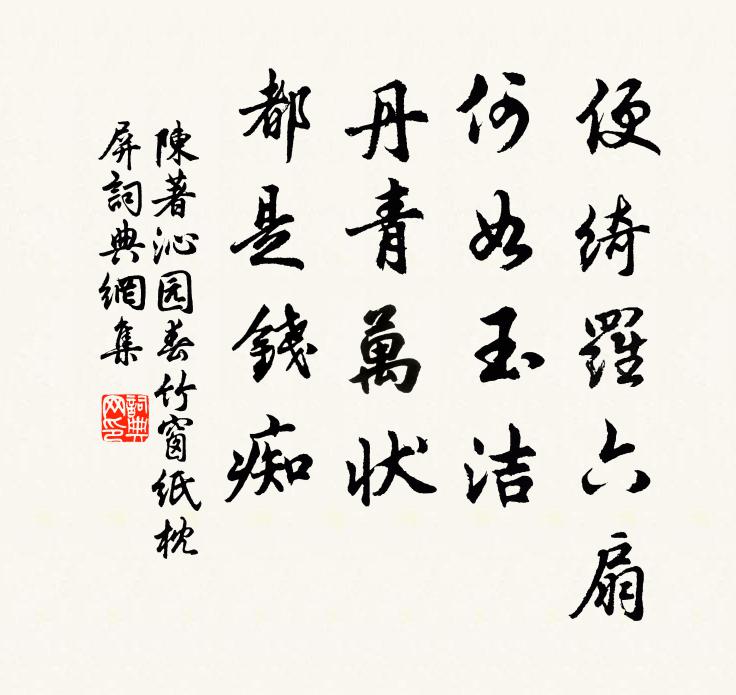 便綺羅六扇
何如玉洁
丹青萬状
都是錢痴
陳著沁园春竹窗紙枕
屏詞典網集
詞典网印